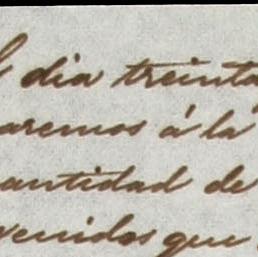 l dia treinta
aremos á la
antidad de
venidos que